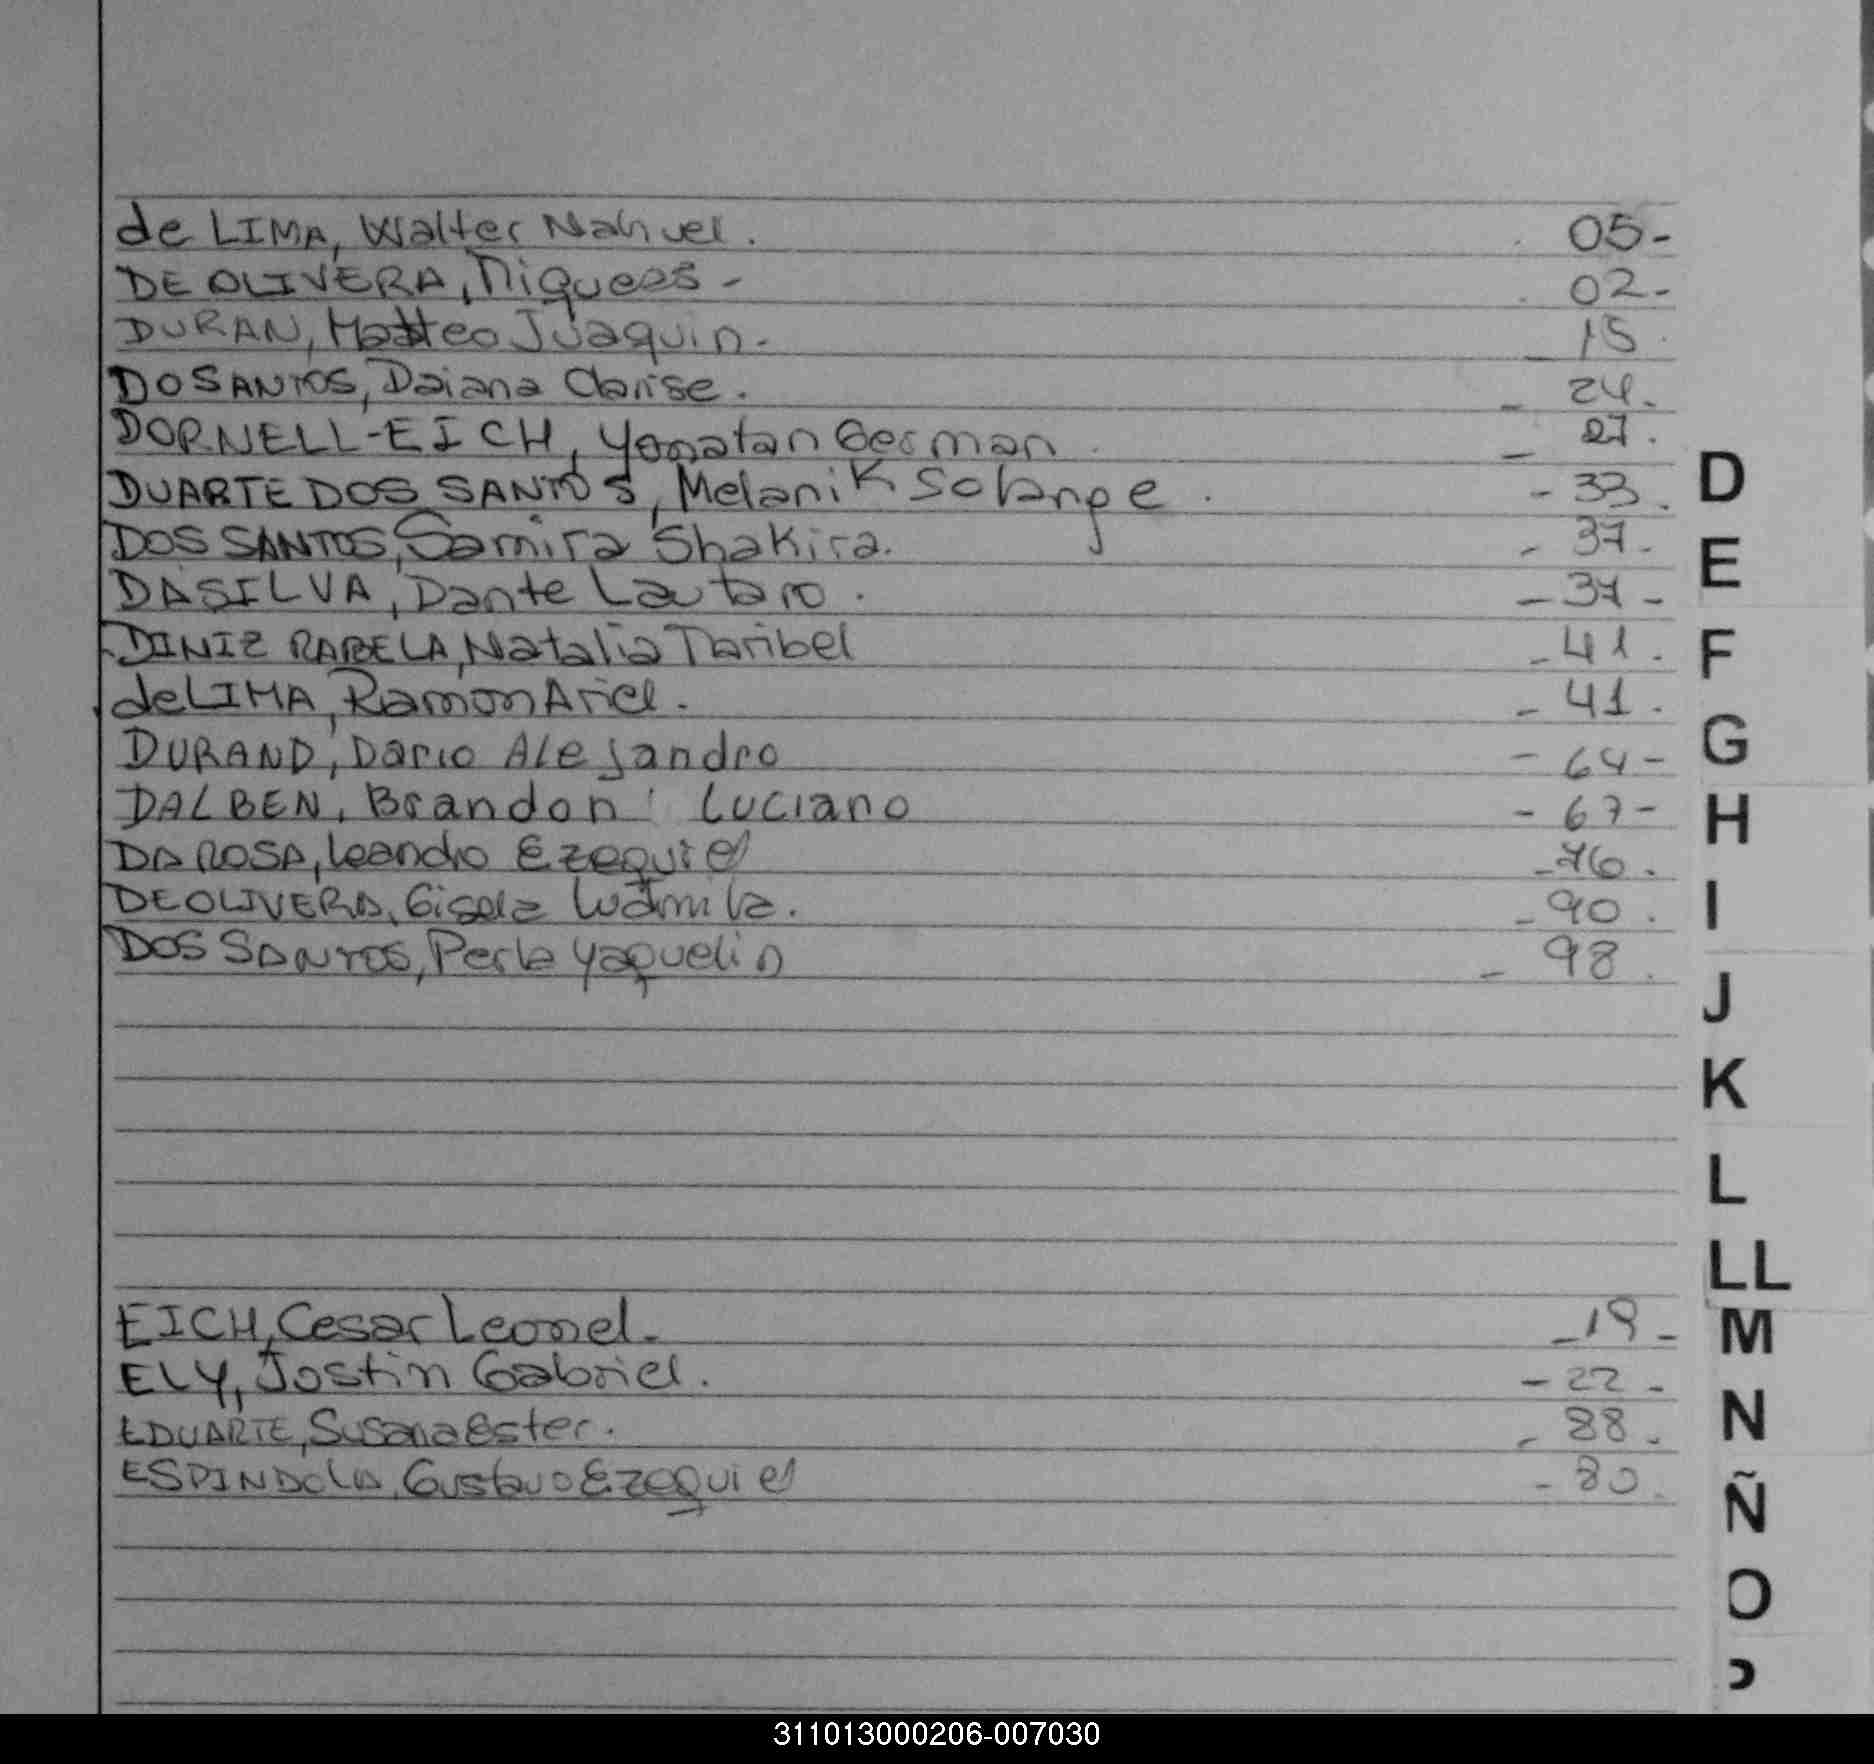 de LIMA, Walter Nahuel. 05-
DE OLIVERA, Miqueas - 02-
DURAN, Matteo Juaquin. - 15.
DOSANTOS, Daiana Clarise. - 24.
DORNELL-EICH, Yonatan German. - 27.
DUARTE DOS SANTOS, Melani K Solange. - 33.
DOS SANTOS, Samira Shakira. - 37.
DASILVA, Dante Lautaro. - 37-
DINIZ RABELA, Natalia Maribel - 41.
de LIMA, Ramon Ariel. - 41.
DURAND, Dario Alejandro - 64-
DALBEN, Brandon Luciano - 67-
DA ROSA, Leandro Ezequiel - 76.
DE OLIVERA, Gisela Ludmila. - 90.
DOS SANTOS, Perla Yaquelin - 98.
EICH, Cesar Leonel. - 19-
ELY, Jostin Gabriel. - 22-
EDUARTE, Susana Ester. - 88.
ESPINDOLA, Gustavo Ezequiel - 80.
D
E
F
G
H
I
J
K
L
LL
M
N
Ñ
O
311013000206-007030